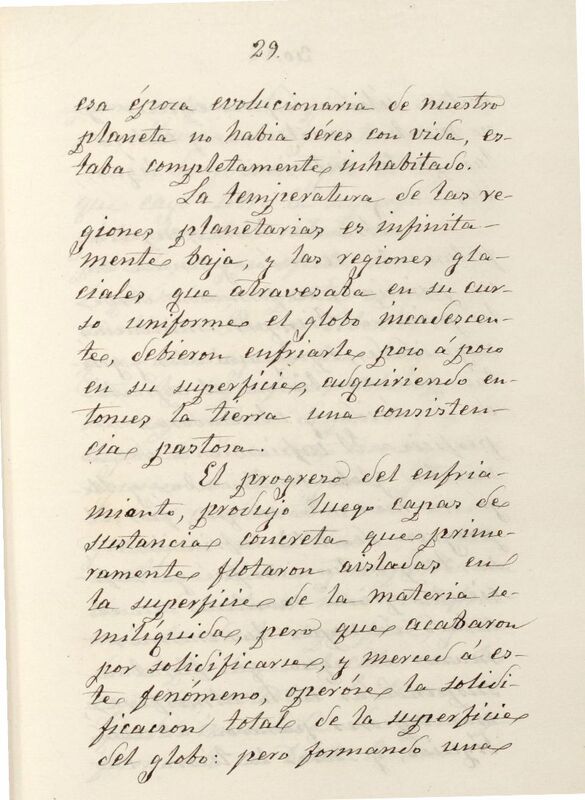 29.
esa época evolucionaria de nuestro
planeta no habia séres con vida, es-
taba completamente inhabitado.
La temperatura de las re-
giones planetarias es infinita-
mente baja, y las regiones gla-
ciales que atravesaba en su cur-
so uniforme el globo incadescen-
te, debieron enfriarle poco á poco
en su superficie, adquiriendo en-
tonces la tierra una consisten-
cia pastosa.
El progreso del enfria-
miento, produjo luego capas de
sustancia concreta que prime-
ramente flotaron aisladas en
la superficie de la materia se-
milíquida, pero que acabaron
por solidificarse, y merced á es-
te fenómeno, operóse la solidi-
ficacion total de la superficie
del globo: pero formando una